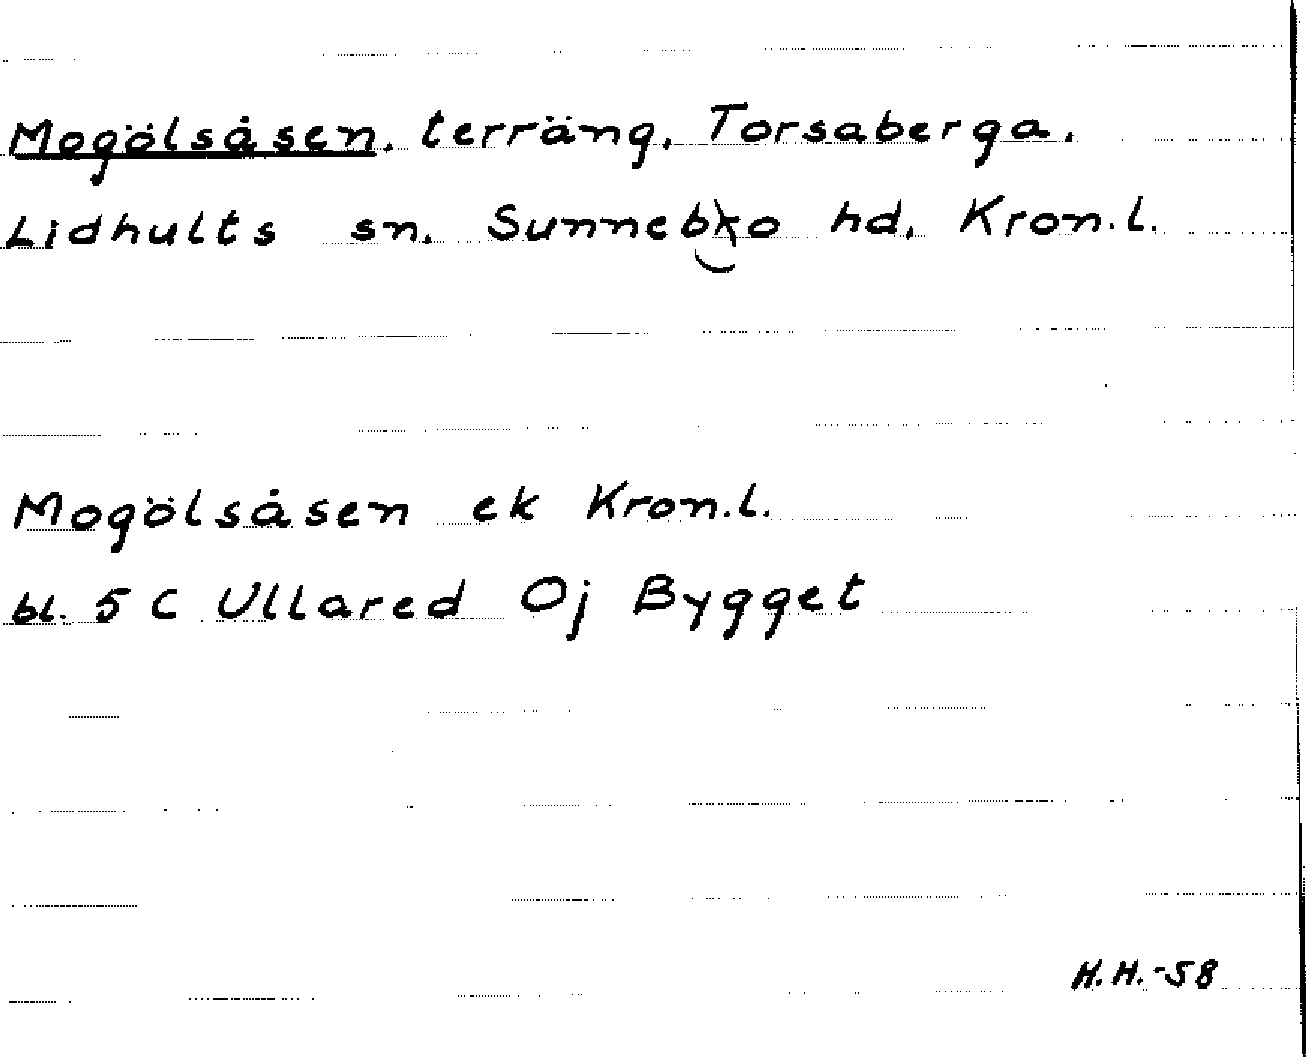 Mogölsåsen. terräng, Torsaberga.
Lidhults sn. Sunnebo hd, Kron.l.
Mogölsåsen ek Kron.l.
bl. 5 C Ullared Oj Bygget
H.H.-58